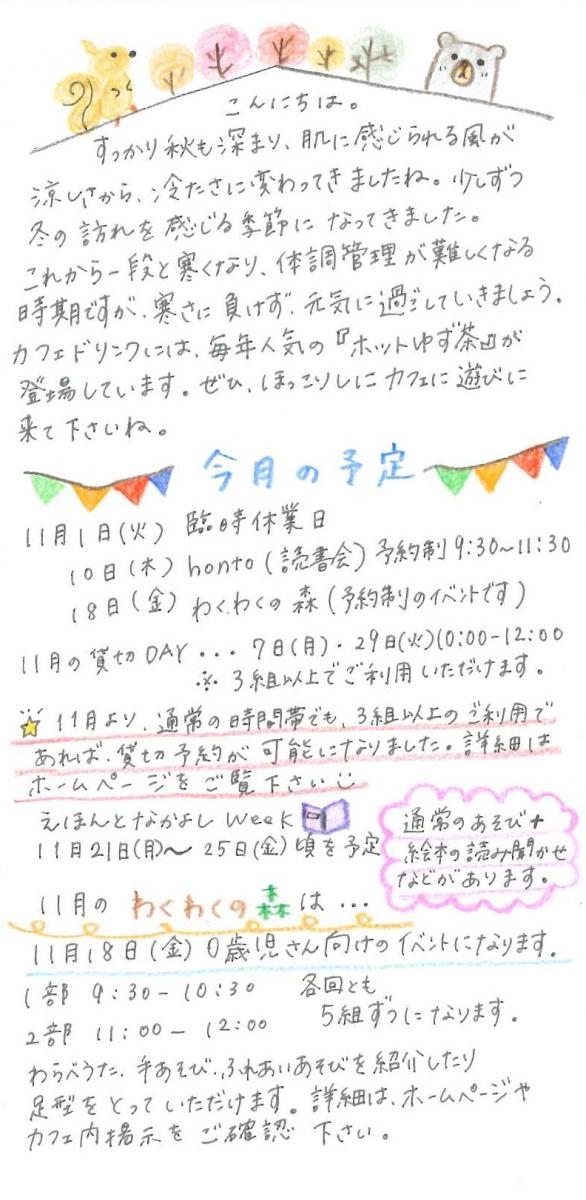 こんにちは。
すっかり秋も深まり、肌に感じられる風が
涼しさから、冷たさに変わってきましたね。少しずつ
冬の訪れを感じる季節になってきました。
これから一段と寒くなり、体調管理が難しくなる
時期ですが、寒さに負けず、元気に過ごしていきましょう。
カフェドリンクには、毎年人気の『ホットゆず茶』が
登場しています。ぜひ、ほっこりしにカフェに遊びに
来て下さいね。
今月の予定
11月1日(火) 臨時休業日
10日(木) honto(読書会)予約制9:30~11:30
18日(金) わくわくの森(予約制のイベントです)
11月の貸切DAY・・・7日(月)・29日(火)10:00-12:00
※3組以上でご利用いただけます。
11月より、通常の時間帯でも、3組以上のご利用で
あれば、貸切予約が可能になりました。詳細は
ホームページをご覧下さい
えほんとなかよしweek
11月21日(月)~25日(金)頃を予定
通常のあそび+
絵本の読み聞かせ
などがあります。
11月のわくわくの森は…
11月18日(金)0歳児さん向けのイベントになります。
1部 9:30-10:30 各回とも
2部 11:00-12:00 5組ずつになります。
わらべうた、手あそび、ふれあいあそびを紹介したり
足型をとっていただけます。詳細は、ホームページや
カフェ内掲示をご確認下さい。